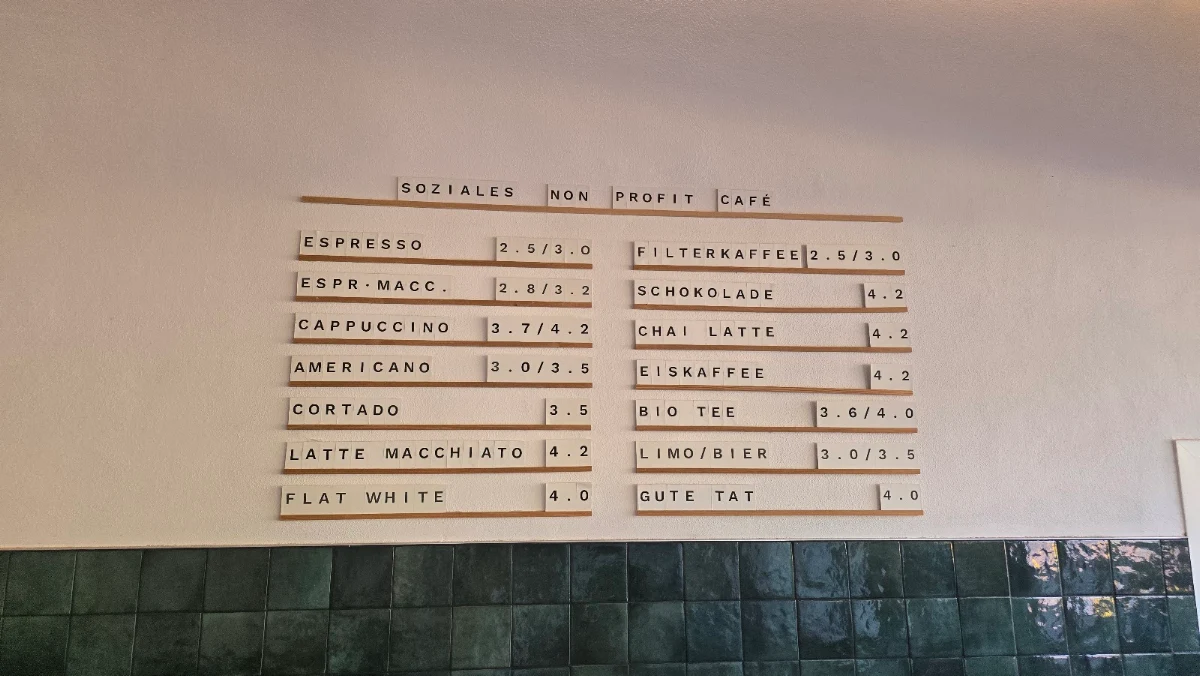 SOZIALES NON PROFIT CAFÉ
ESPRESSO 2.5/3.0
ESPR·MACC. 2.8/3.2
CAPPUCCINO 3.7/4.2
AMERICANO 3.0/3.5
CORTADO 3.5
LATTE MACCHIATO 4.2
FLAT WHITE 4.0
FILTERKAFFEE 2.5/3.0
SCHOKOLADE 4.2
CHAI LATTE 4.2
EISKAFFEE 4.2
BIO TEE 3.6/4.0
LIMO/BIER 3.0/3.5
GUTE TAT 4.0